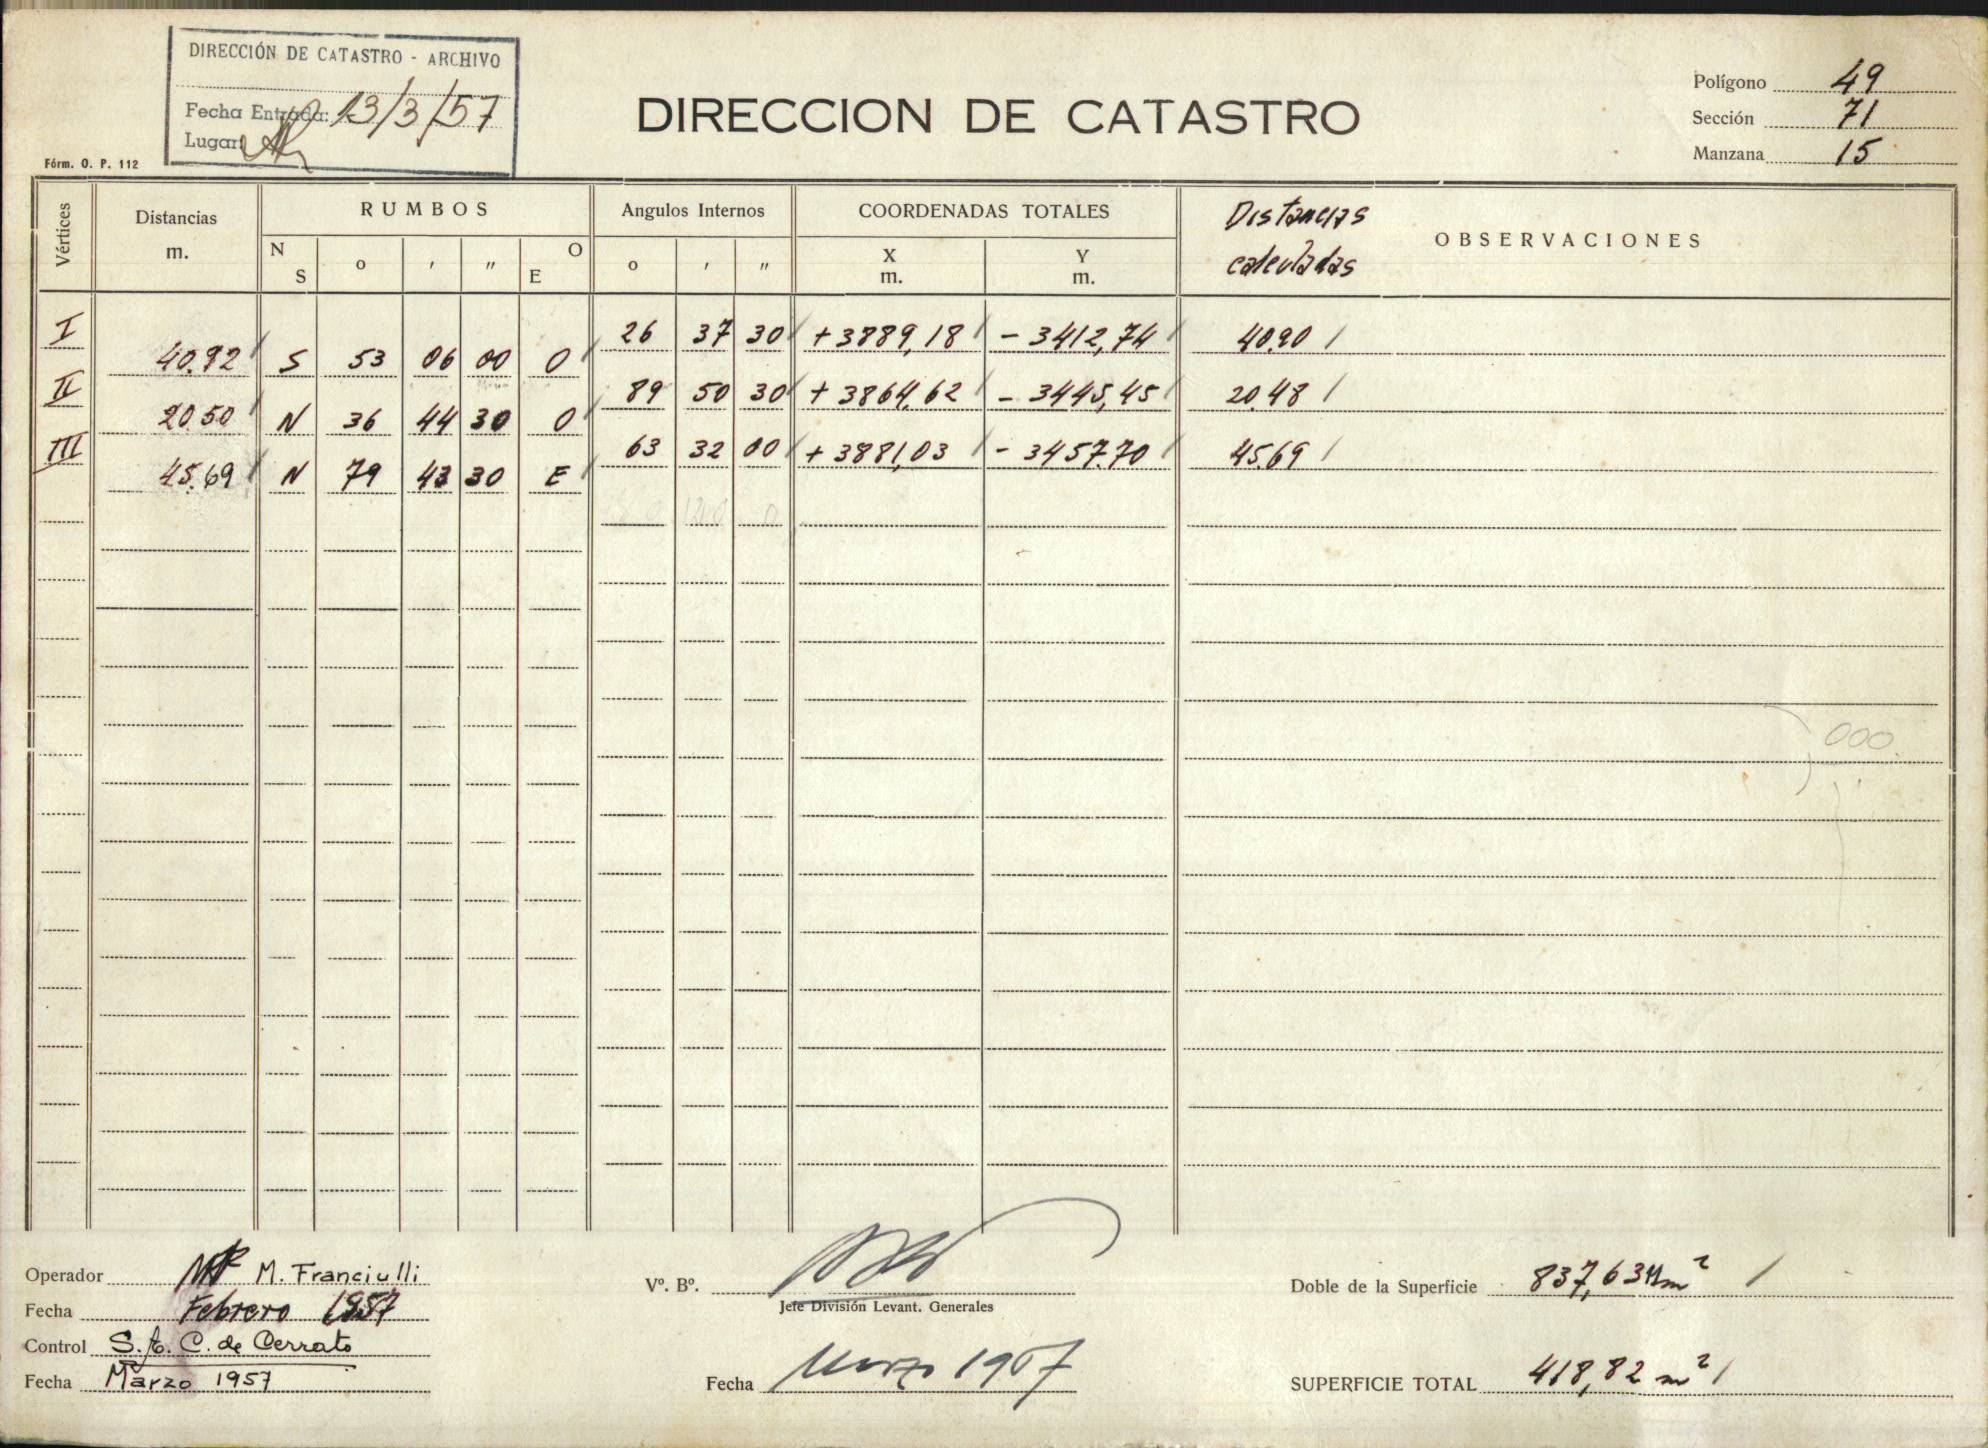 DIRECCIÓN DE CATASTRO - ARCHIVO
Fecha Entrada: 13/3/57
Lugar:
Fórm. O. P. 112
DIRECCION DE CATASTRO
Polígono 49
Sección 71
Manzana 15
Vértices Distancias m. RUMBOS N S o ′ ″ O E Angulos Internos o ′ ″ COORDENADAS TOTALES X m. Y m. Distancias calculadas OBSERVACIONES
I 26 37 30 +3889,18 -3412,74 40.90
40.92 S 53 06 00 O
II 89 50 30 +3864,62 -3445,45 20.48
20.50 N 36 44 30 O
III 63 32 00 +3881,03 -3457.70 45.69
45.69 N 79 43 30 E
000
Operador M. Franciulli
Fecha Febrero 1957
Control S. C. de Cerrato
Fecha Marzo 1957
Vº. Bº.
Jefe División Levant. Generales
Fecha Marzo 1957
Doble de la Superficie 837,6311 m²
SUPERFICIE TOTAL 418,82 m²